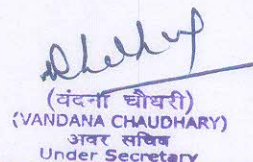 (वंदना चौधरी)
(VANDANA CHAUDHARY)
अवर सचिव
Under Secretary